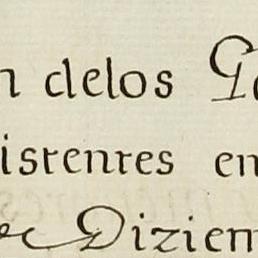 n delos
istentes en
Diziem